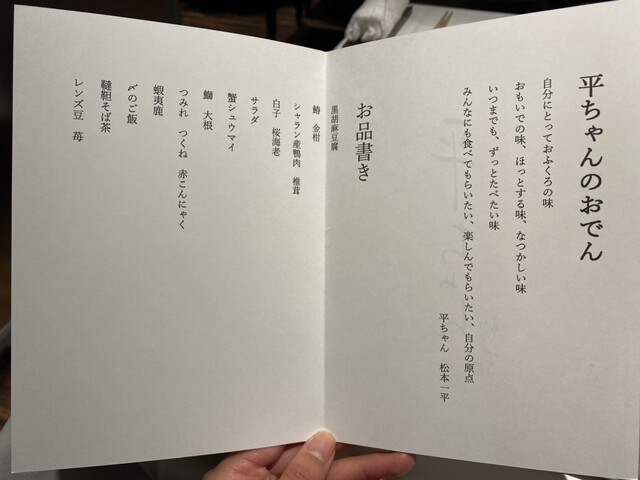 平ちゃんのおでん
自分にとっておふくろの味
おもいでの味、ほっとする味、なつかしい味
いつまでも、ずっとたべたい味
みんなにも食べてもらいたい、楽しんでもらいたい、自分の原点
平ちゃん 松本一平
お品書き
黒胡麻豆腐
鰆 金柑
シャラン産鴨肉 椎茸
白子 桜海老
サラダ
蟹シュウマイ
鰤 大根
つみれ つくね 赤こんにゃく
蝦夷鹿
〆のご飯
韃靼そば茶
レンズ豆 苺